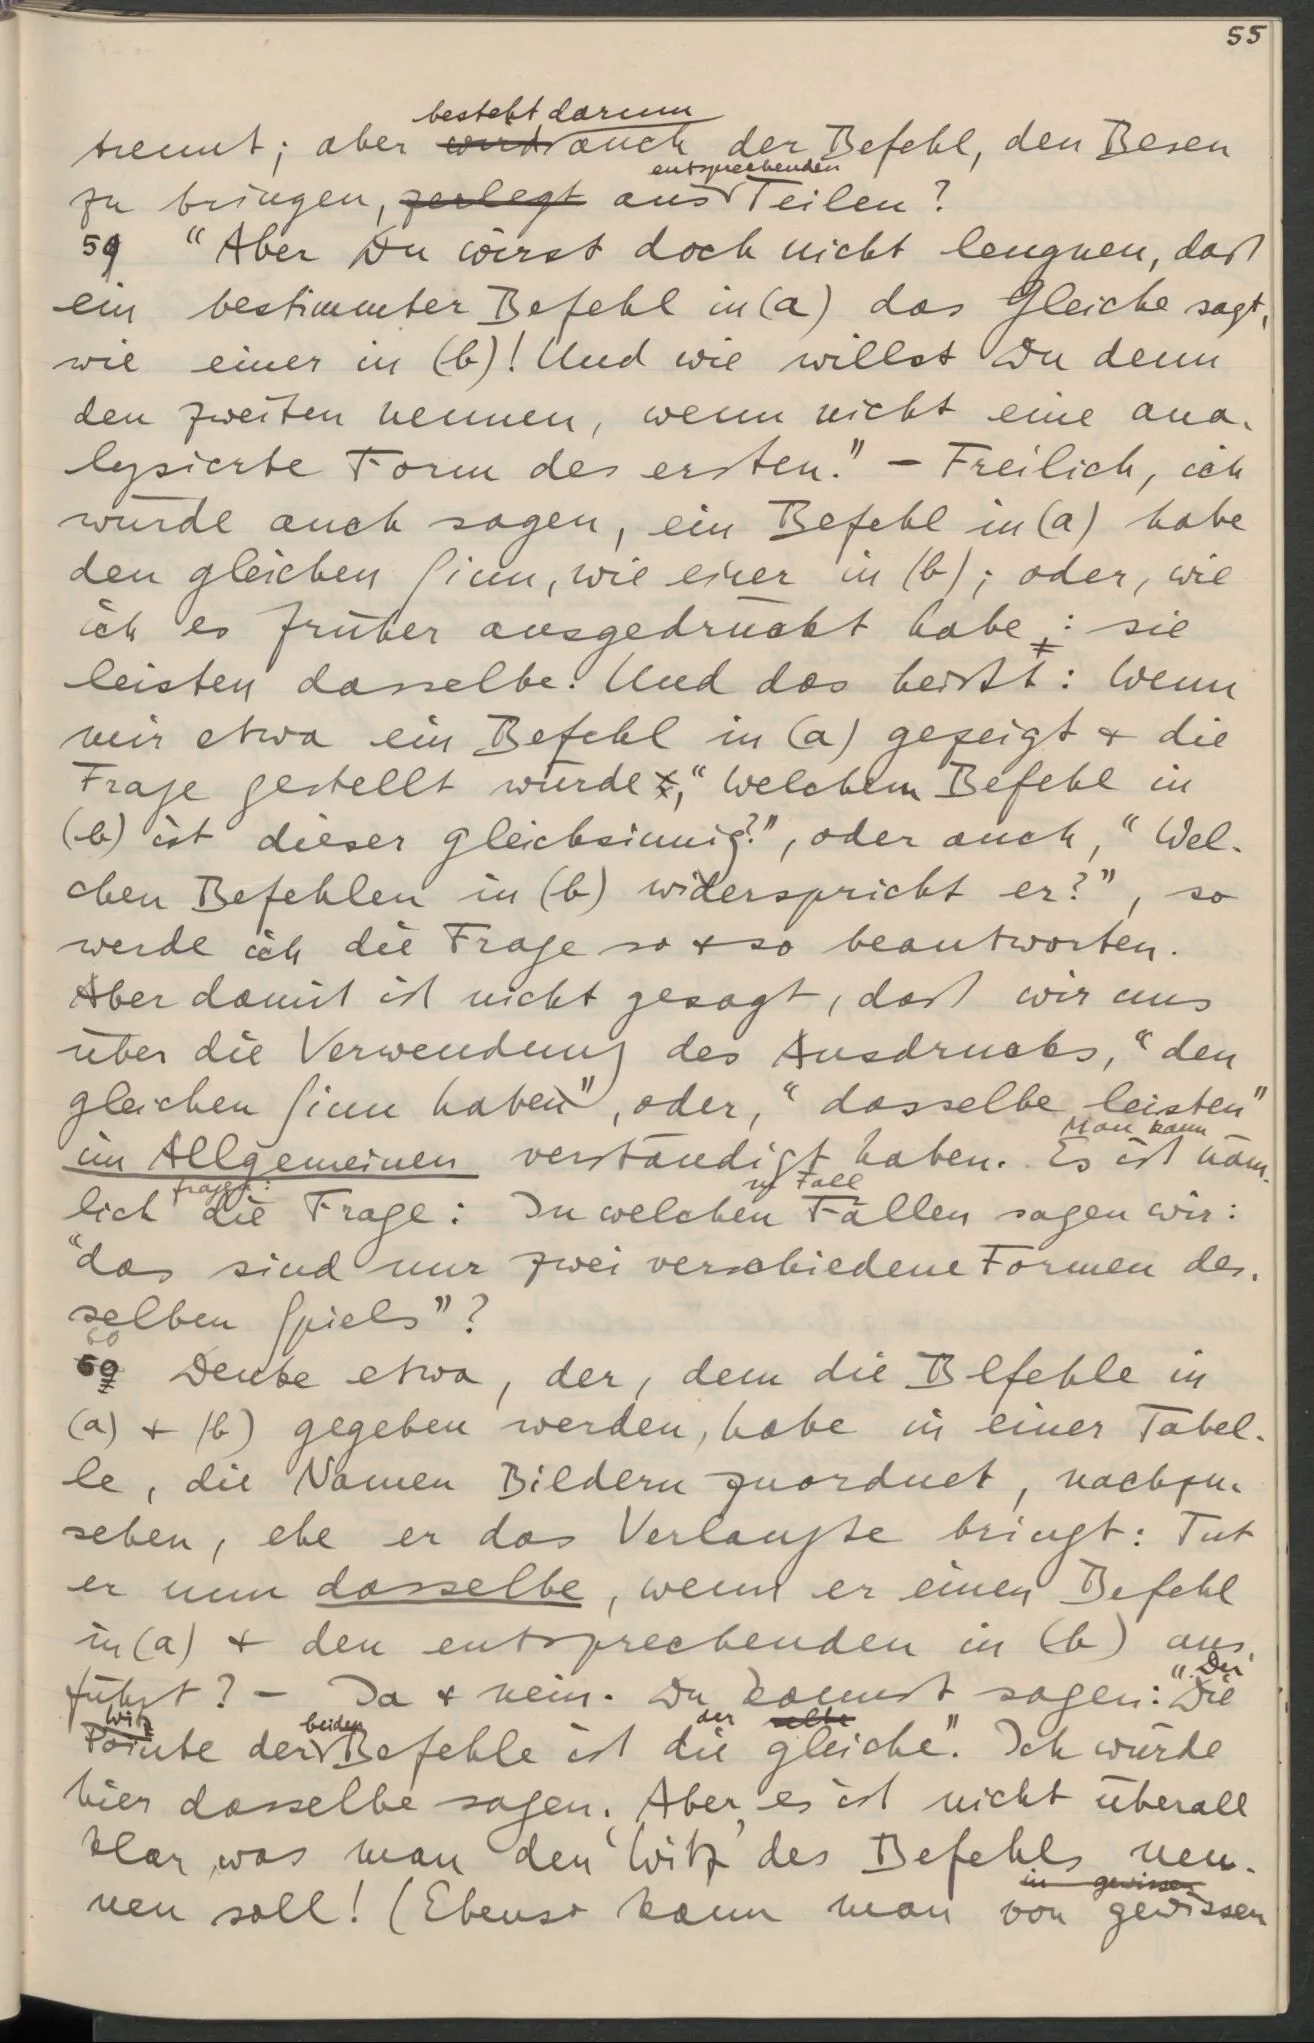 55
besteht darum
trennt; aber wird auch der Befehl, den Besen
entsprechenden
zu bringen, zerlegt aus Teilen?
59 "Aber Du wirst doch nicht leugnen, daß
ein bestimmter Befehl in (a) das Gleiche sagt,
wie einer in (b)! Und wie willst Du denn
den zweiten nennen, wenn nicht eine ana-
lysierte Form des ersten." – Freilich, ich
würde auch sagen, ein Befehl in (a) habe
den gleichen Sinn, wie einer in (b); oder, wie
ich es früher ausgedrückt habe: sie
leisten dasselbe. Und das heißt: Wenn
mir etwa ein Befehl in (a) gezeigt & die
Frage gestellt würde, "Welchem Befehl in
(b) ist dieser gleichsinnig?", oder auch, "Wel-
chen Befehlen in (b) widerspricht er?", so
werde ich die Frage so & so beantworten.
Aber damit ist nicht gesagt, daß wir uns
über die Verwendung des Ausdrucks, "den
gleichen Sinn haben", oder, "dasselbe leisten"
Man kann
im Allgemeinen verständigt haben. Es ist näm-
fragen: m Fall
lich die Frage: In welchen Fällen sagen wir:
"das sind nur zwei verschiedene Formen des-
selben Spiels"?
60
59 Denke etwa, der, dem die Befehle in
(a) & (b) gegeben werden, habe in einer Tabel-
le, die Namen Bildern zuordnet, nachzu-
sehen, ehe er das Verlangte bringt: Tut
er nun dasselbe, wenn er einen Befehl
in (a) & den entsprechenden in (b) aus-
"Der
führt? – Ja & nein. Du kannst sagen: "Die
Witz beiden der selbe
Pointe der Befehle ist die gleiche". Ich würde
hier dasselbe sagen. Aber es ist nicht überall
klar, was man den 'Witz' des Befehls nen-
in gewissen
nen soll! (Ebenso kann man von gewissen